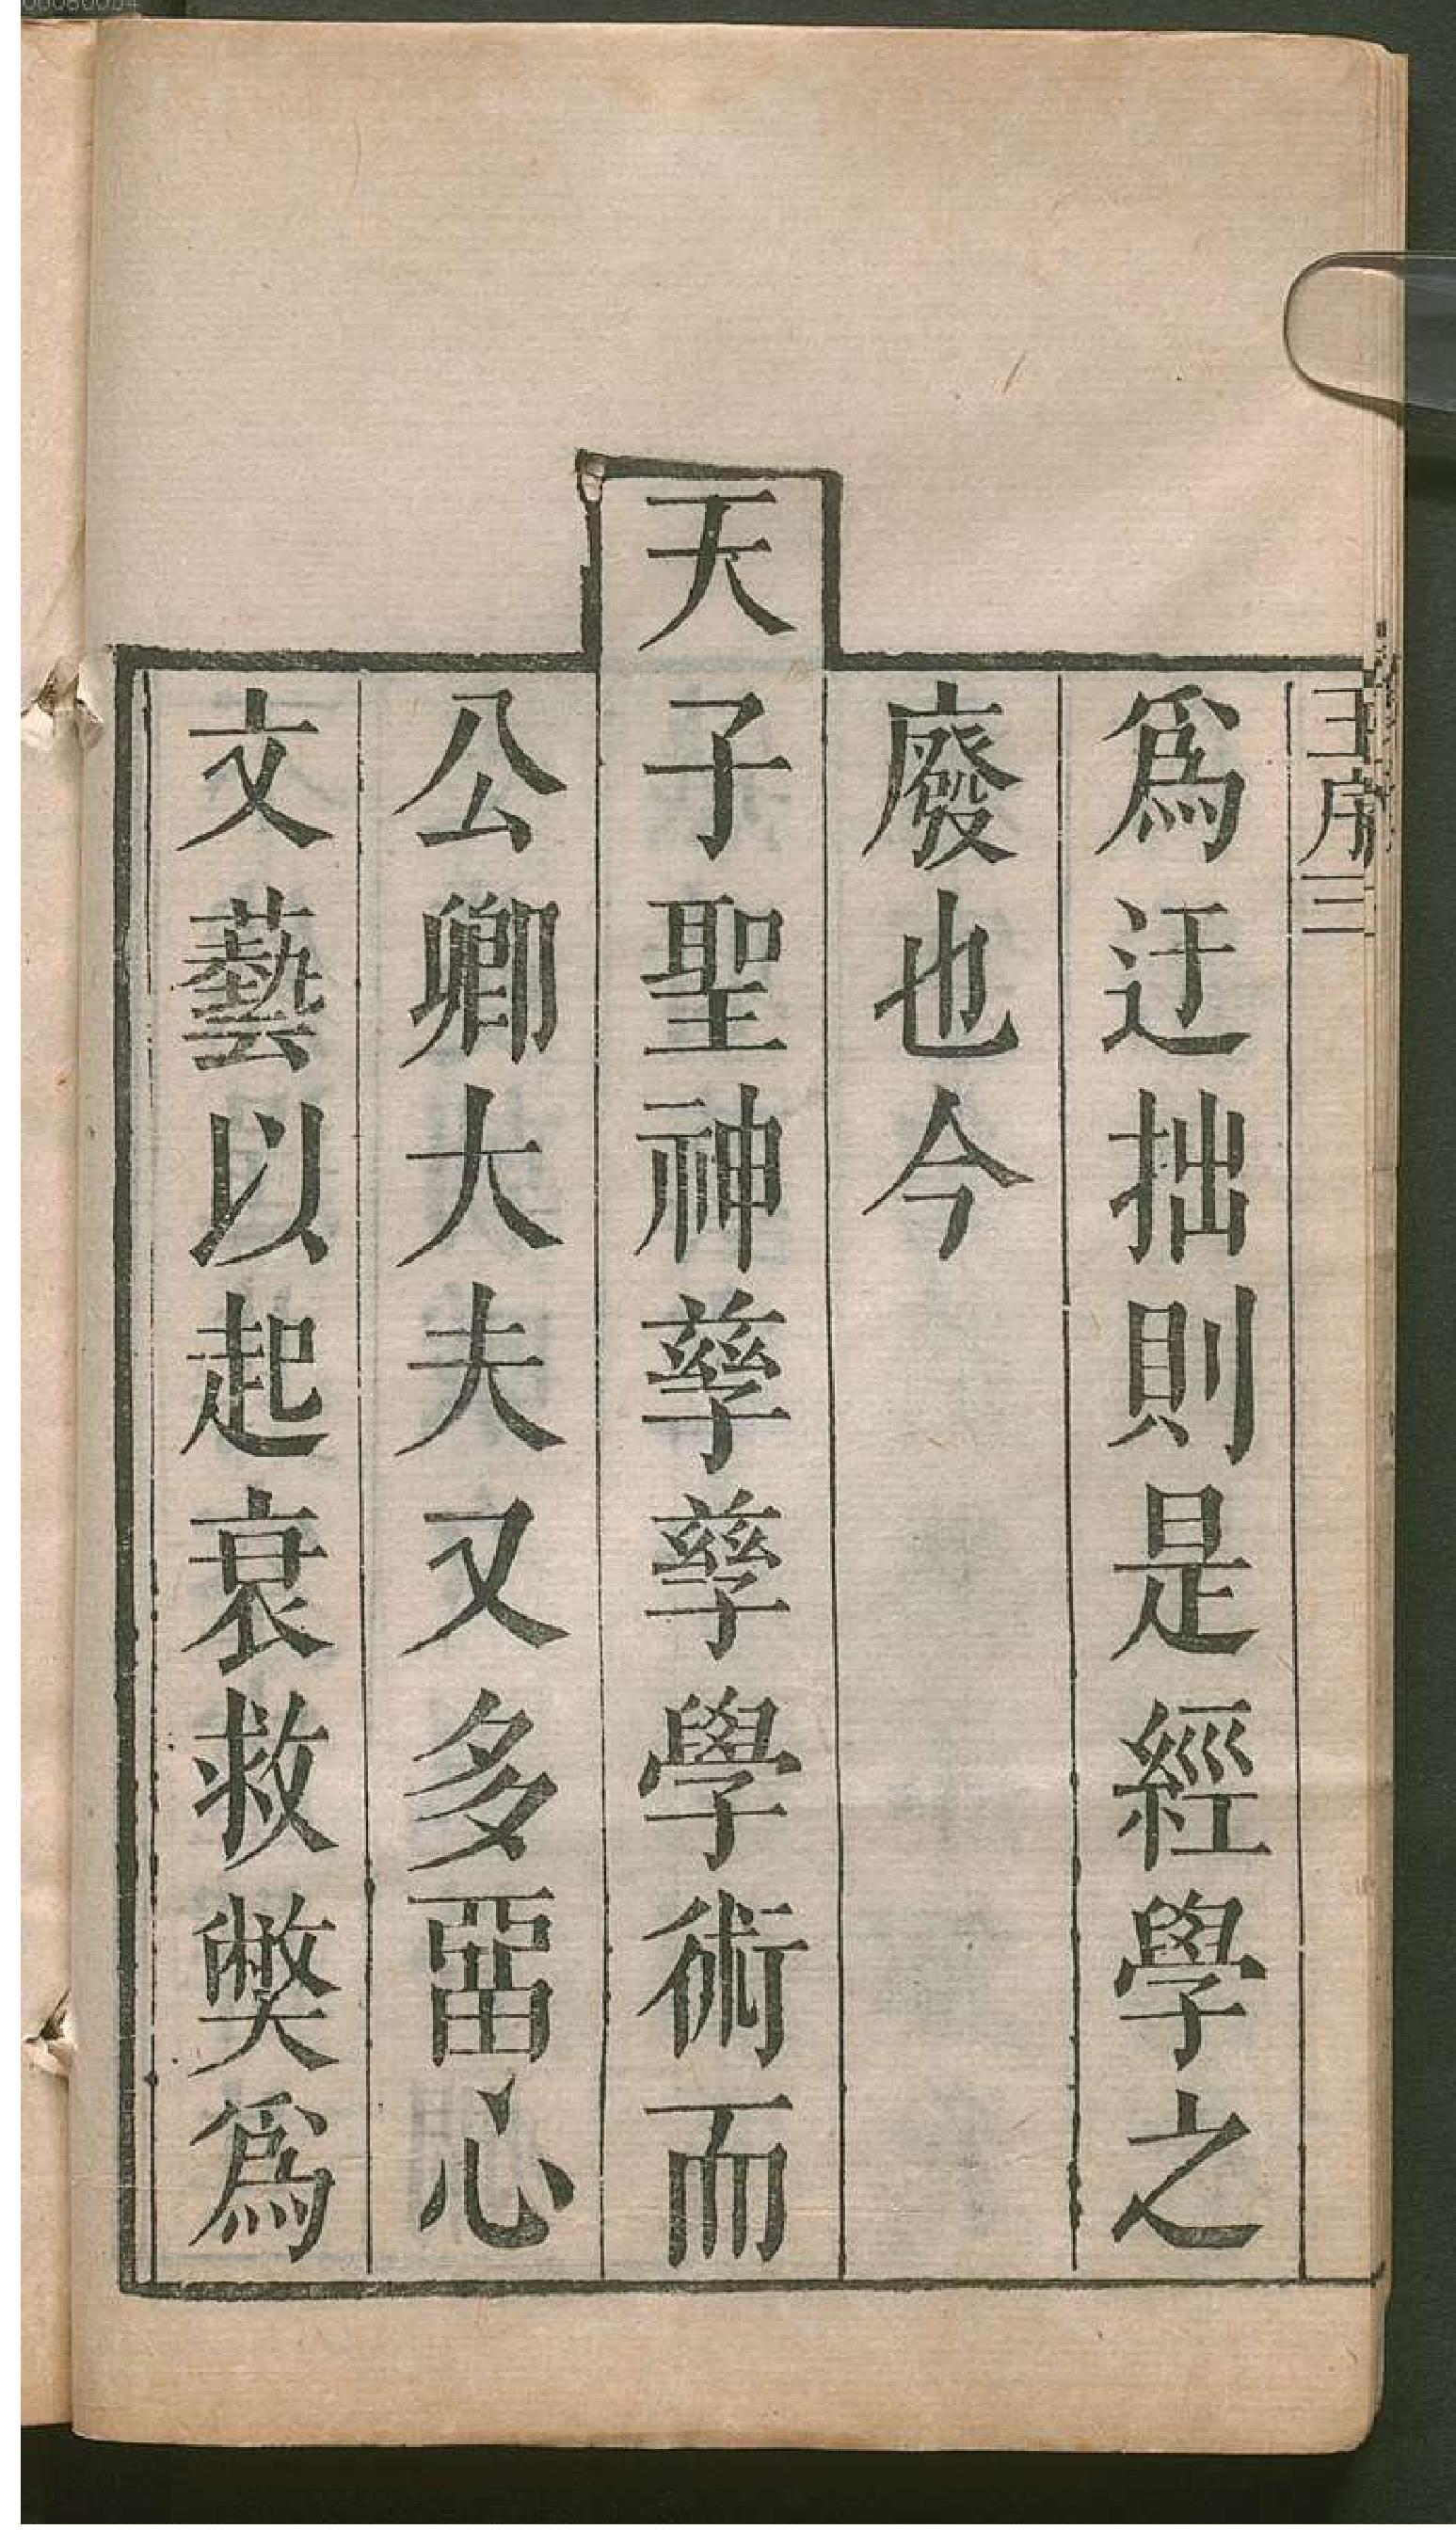 王序 三
爲迂拙則是經學之
廢也今
天子聖神孳孳學術而
公卿大夫又多畱心
文藝以起衰救獘爲